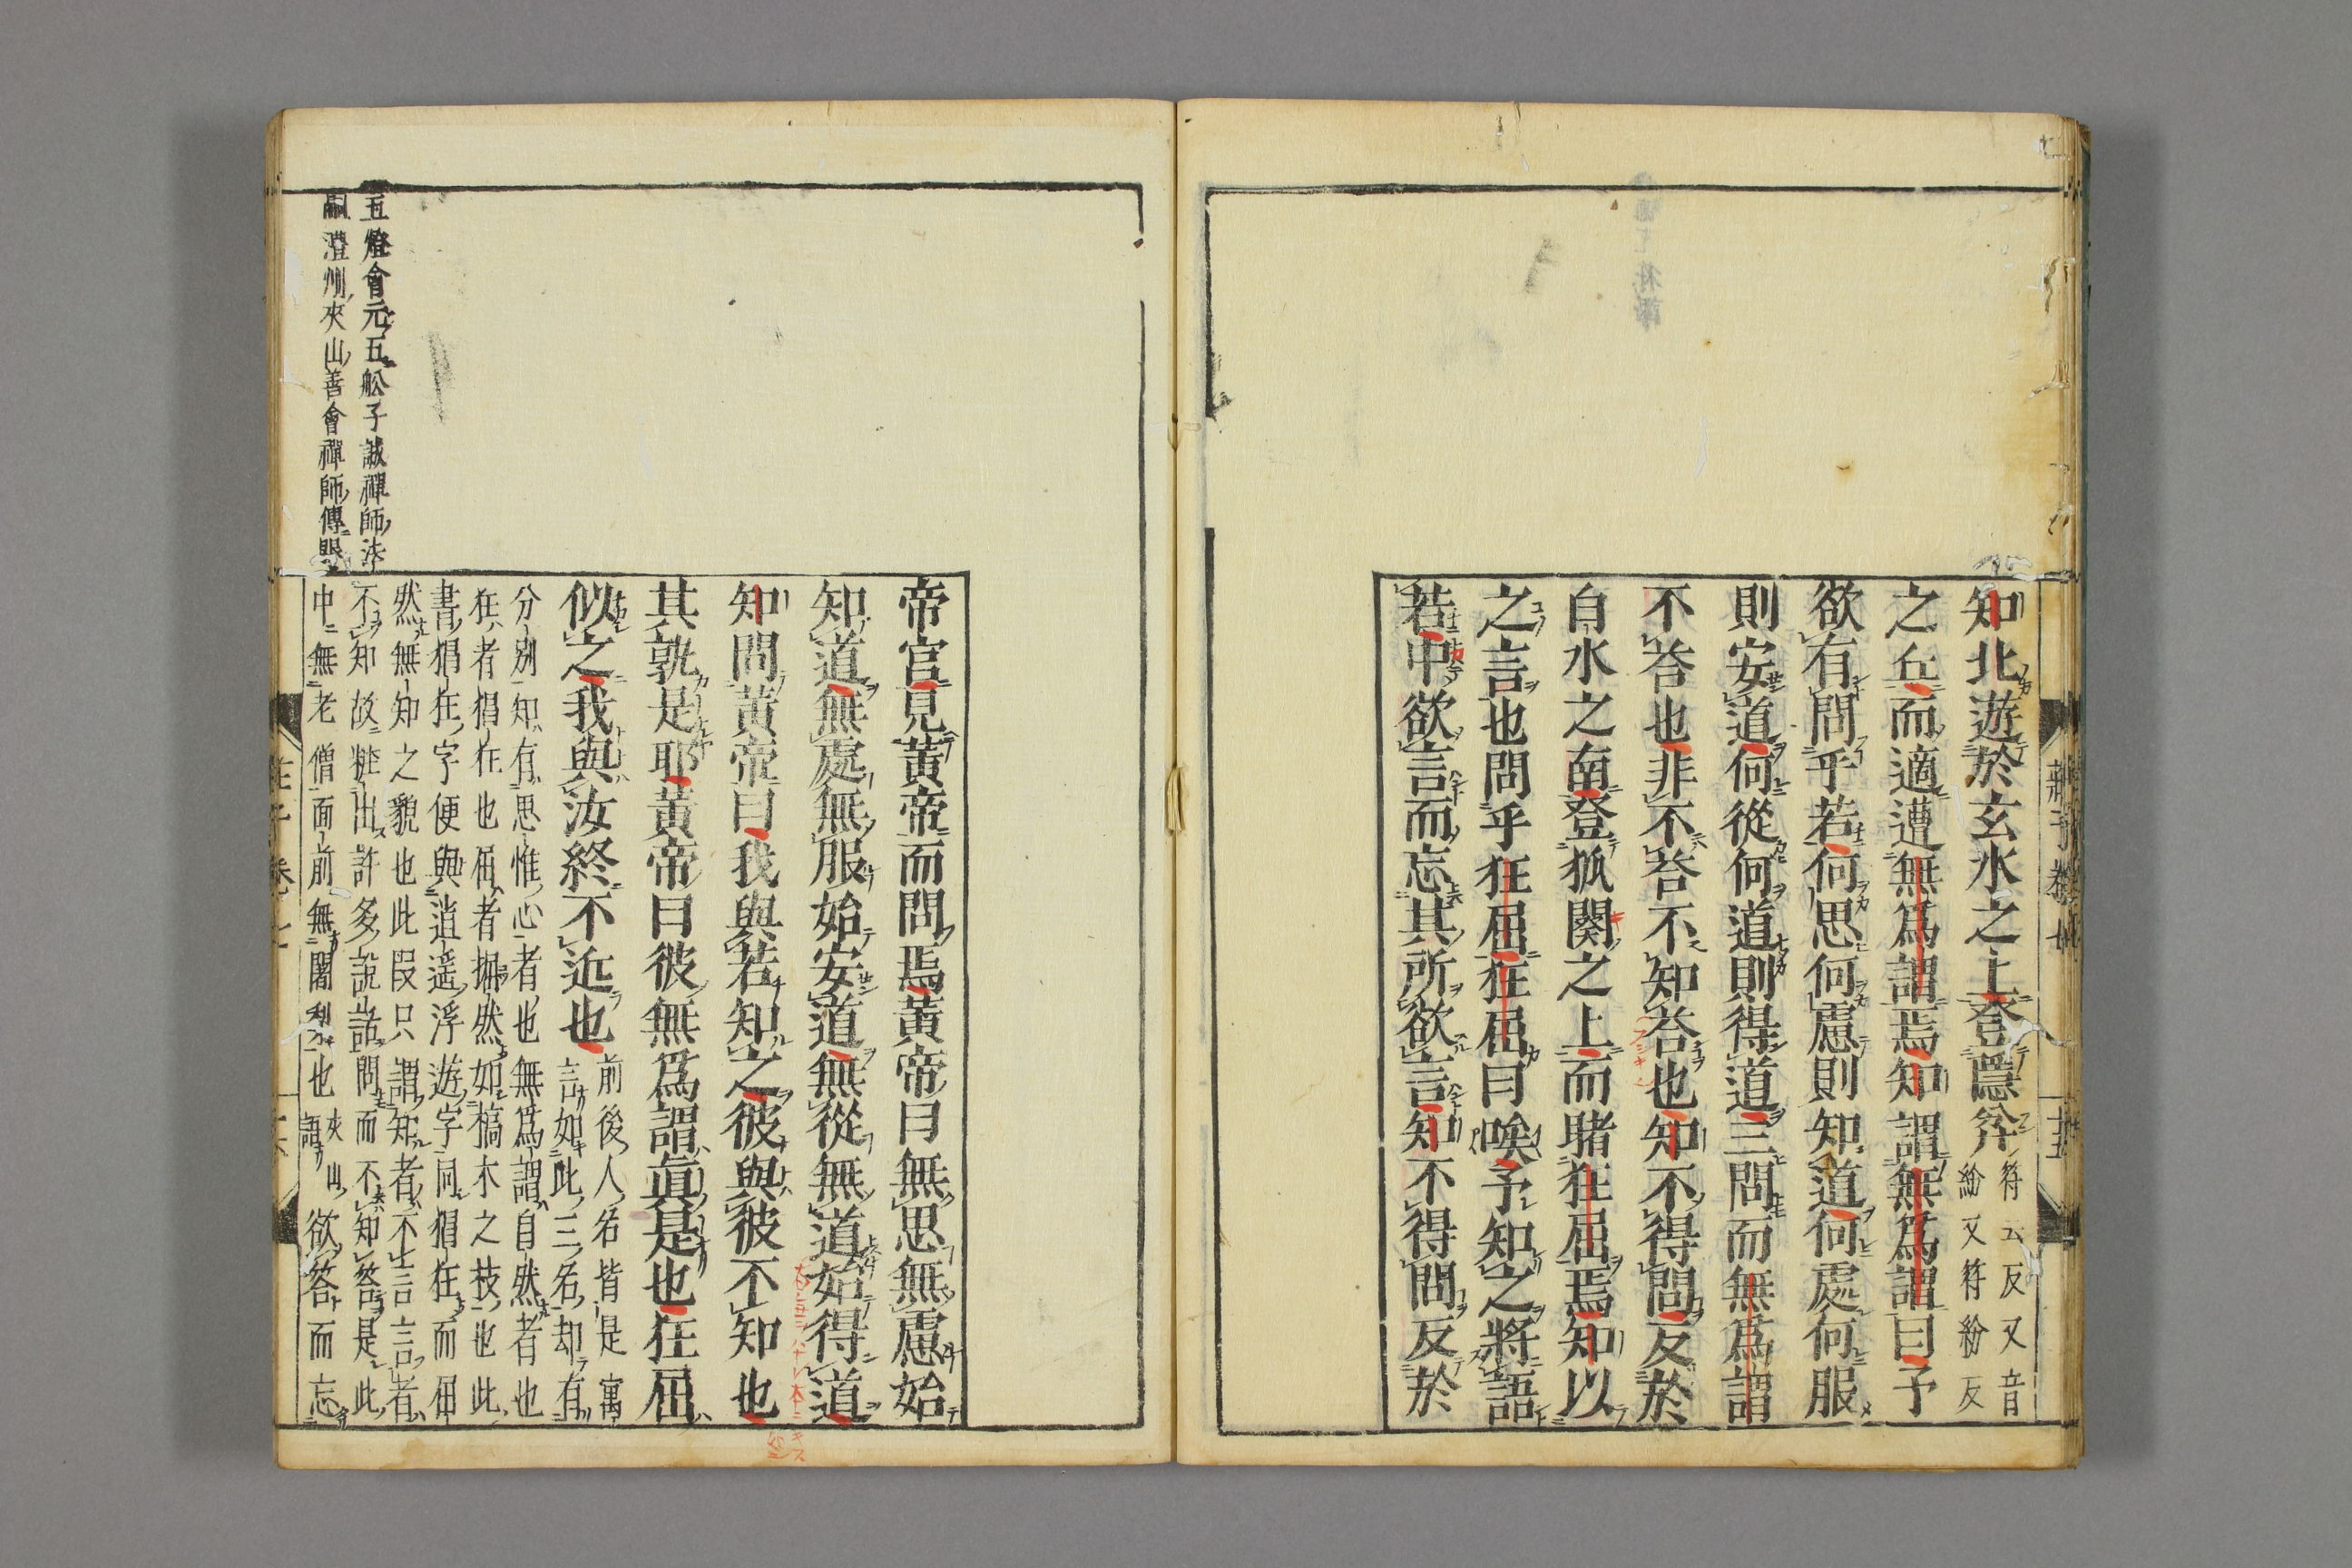 知北遊於玄水之上登隱弅符云反又音
紛又符紛反
之丘而適遭無爲謂焉知謂無爲謂曰予
欲有問乎若何思何慮則知道何處何服
則安道何從何道則得道三問而無爲謂
不荅也非不荅不知荅也知不得問反於
自水之南登狐闋之上而睹狂屈焉知以
之言也問乎狂屈狂屈曰唉予知之將語
若中欲言而忘其所欲言知不得問反於
帝宮見黃帝而問焉黃帝曰無思無慮始
知道無處無服始安道無從無道始得道
知問黃帝曰我與若知之彼與彼不知也
其孰是耶黃帝曰彼無爲謂眞是也狂屈
似之我與汝終不近也前後人名皆是寓
言如此三名却有
分別知有思惟心者也無爲謂自然者也
狂者猖狂也屈者掘然如槁木之枝也此
書猖狂字便與逍遙浮遊字同猖狂而屈
然無知之貌也此段只謂知者不言言者
不知故粧出許多說話問而不知答是此
中無老僧面前無闍利也夾山
語欲答而忘
五燈會元五舩子誠禪師法
嗣澧州夾山善會禪師傳
莊子卷七
十五